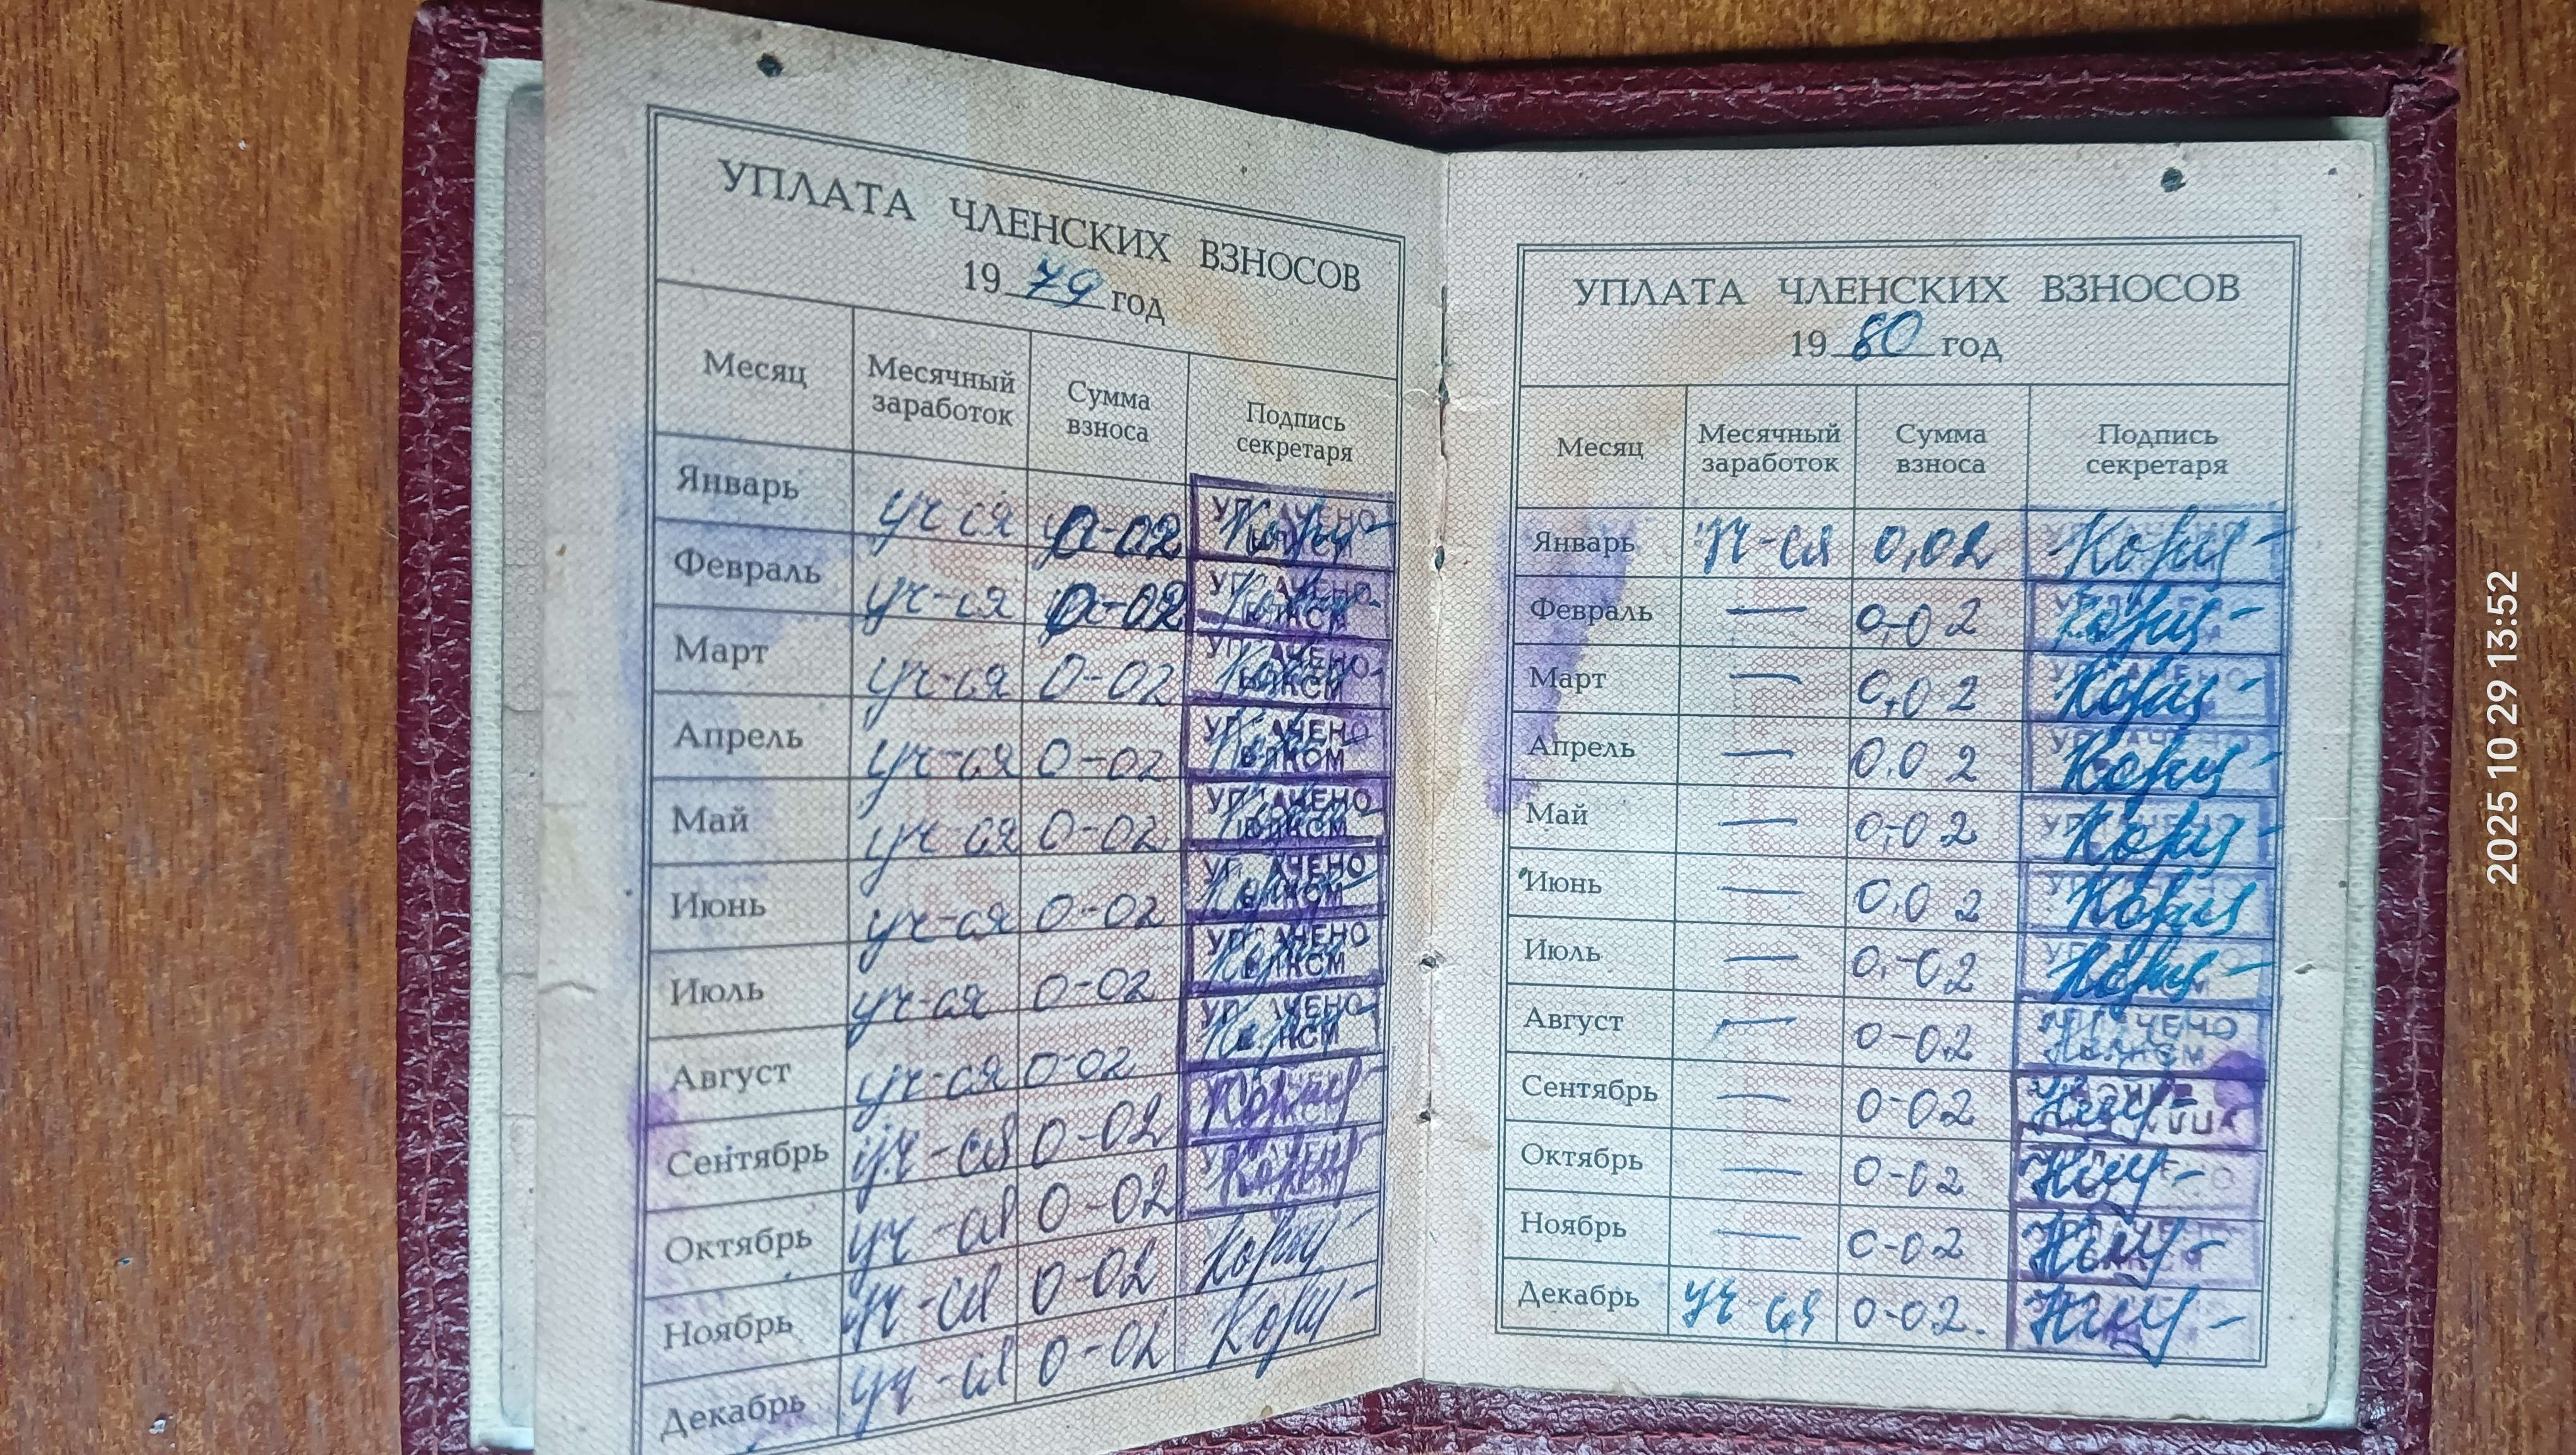 УПЛАТА ЧЛЕНСКИХ ВЗНОСОВ
1979 год
Месяц Месячный заработок Сумма взноса Подпись секретаря
Январь уч-ся 0-02 УПЛАЧЕНО ВЛКСМ
Февраль уч-ся 0-02 УПЛАЧЕНО ВЛКСМ
Март уч-ся 0-02 УПЛАЧЕНО ВЛКСМ
Апрель уч-ся 0-02 УПЛАЧЕНО ВЛКСМ
Май уч-ся 0-02 УПЛАЧЕНО ВЛКСМ
Июнь уч-ся 0-02 УПЛАЧЕНО ВЛКСМ
Июль уч-ся 0-02 УПЛАЧЕНО ВЛКСМ
Август уч-ся 0-02 УПЛАЧЕНО ВЛКСМ
Сентябрь уч-ся 0-02
Октябрь уч-ся 0-02
Ноябрь уч-ся 0-02
Декабрь уч-ся 0-02
УПЛАТА ЧЛЕНСКИХ ВЗНОСОВ
1980 год
Месяц Месячный заработок Сумма взноса Подпись секретаря
Январь уч-ся 0,02
Февраль — 0,02
Март — 0,02
Апрель — 0,02
Май — 0,02
Июнь — 0,02
Июль — 0,02
Август — 0-02 УПЛАЧЕНО ВЛКСМ
Сентябрь — 0-02
Октябрь — 0-02
Ноябрь — 0-02
Декабрь уч-ся 0-02.
2025 10 29 13:52